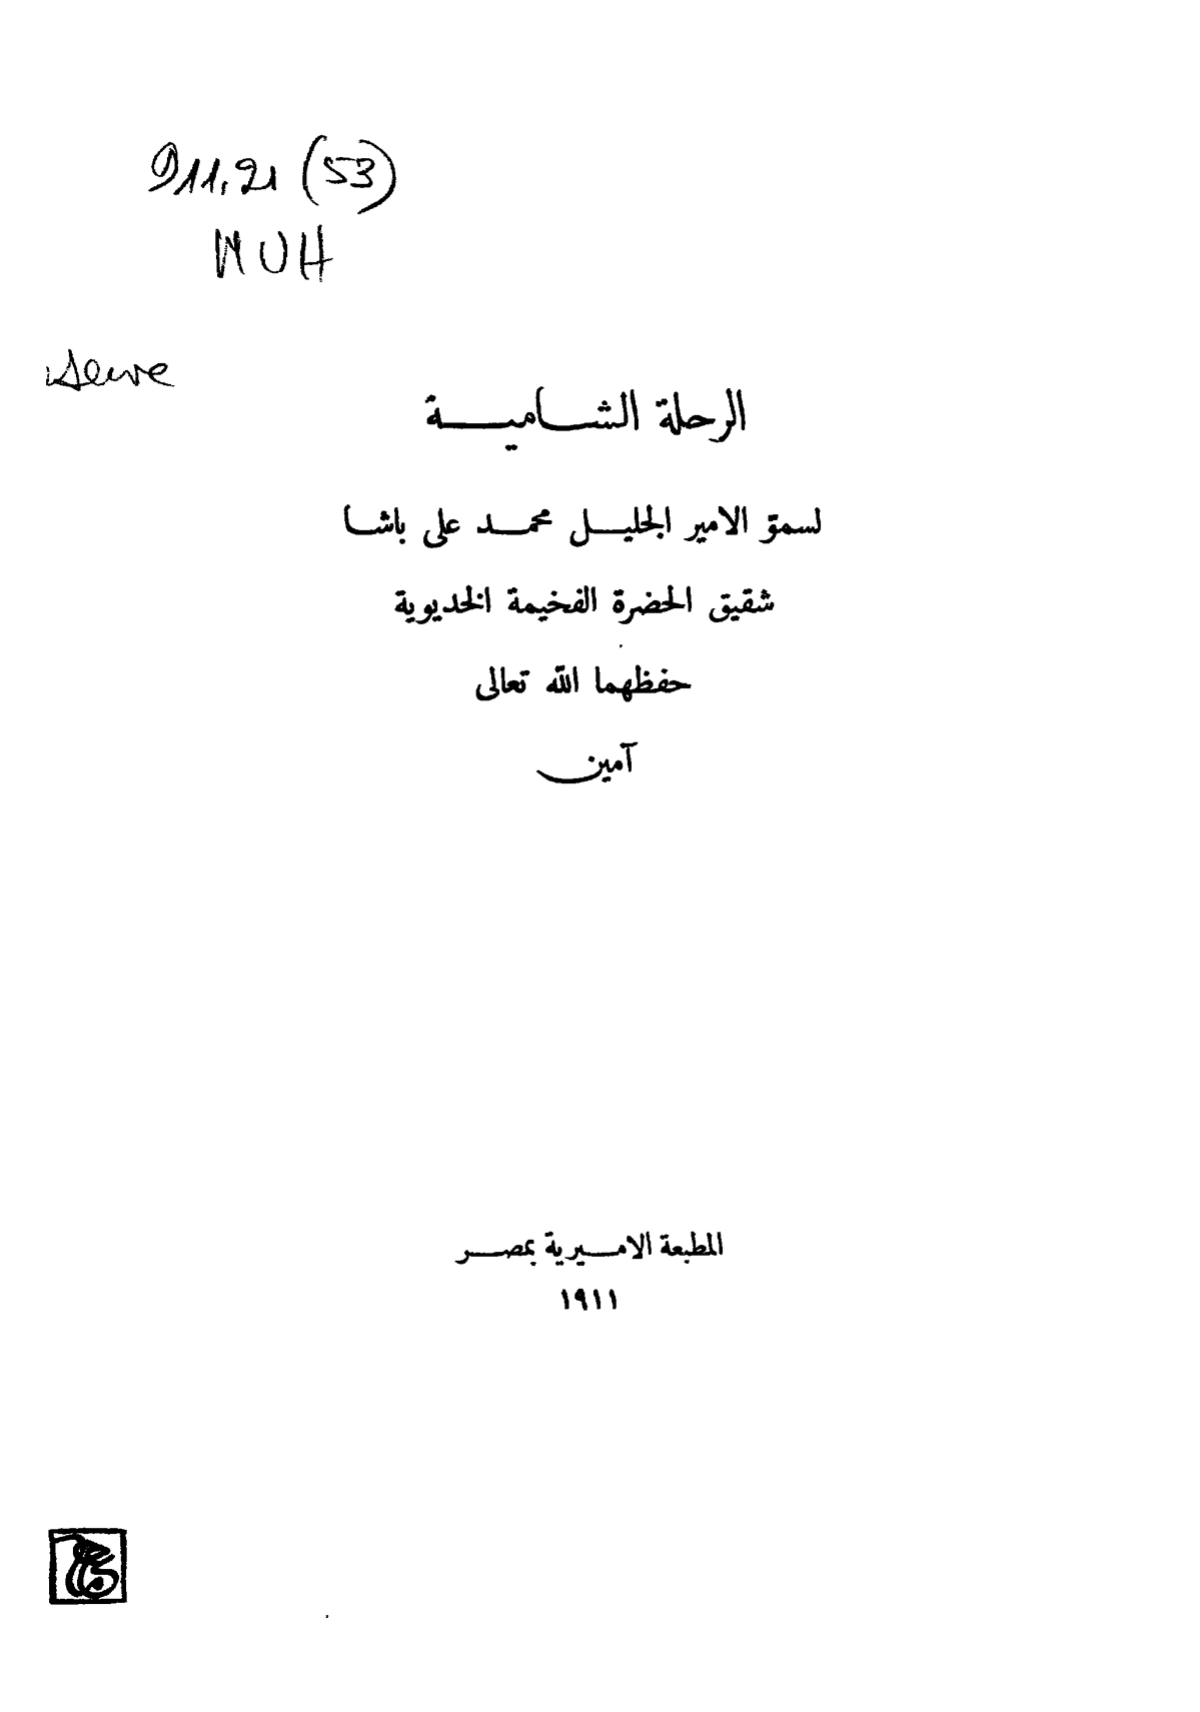 911.21 (53)
MUH
الرحلة الشامية
لسمو الامير الجليل محمد على باشا
شقيق الحضرة الفخيمة الخديوية
حفظهما الله تعالى
آمين
المطبعة الاميرية بمصر
١٩١١